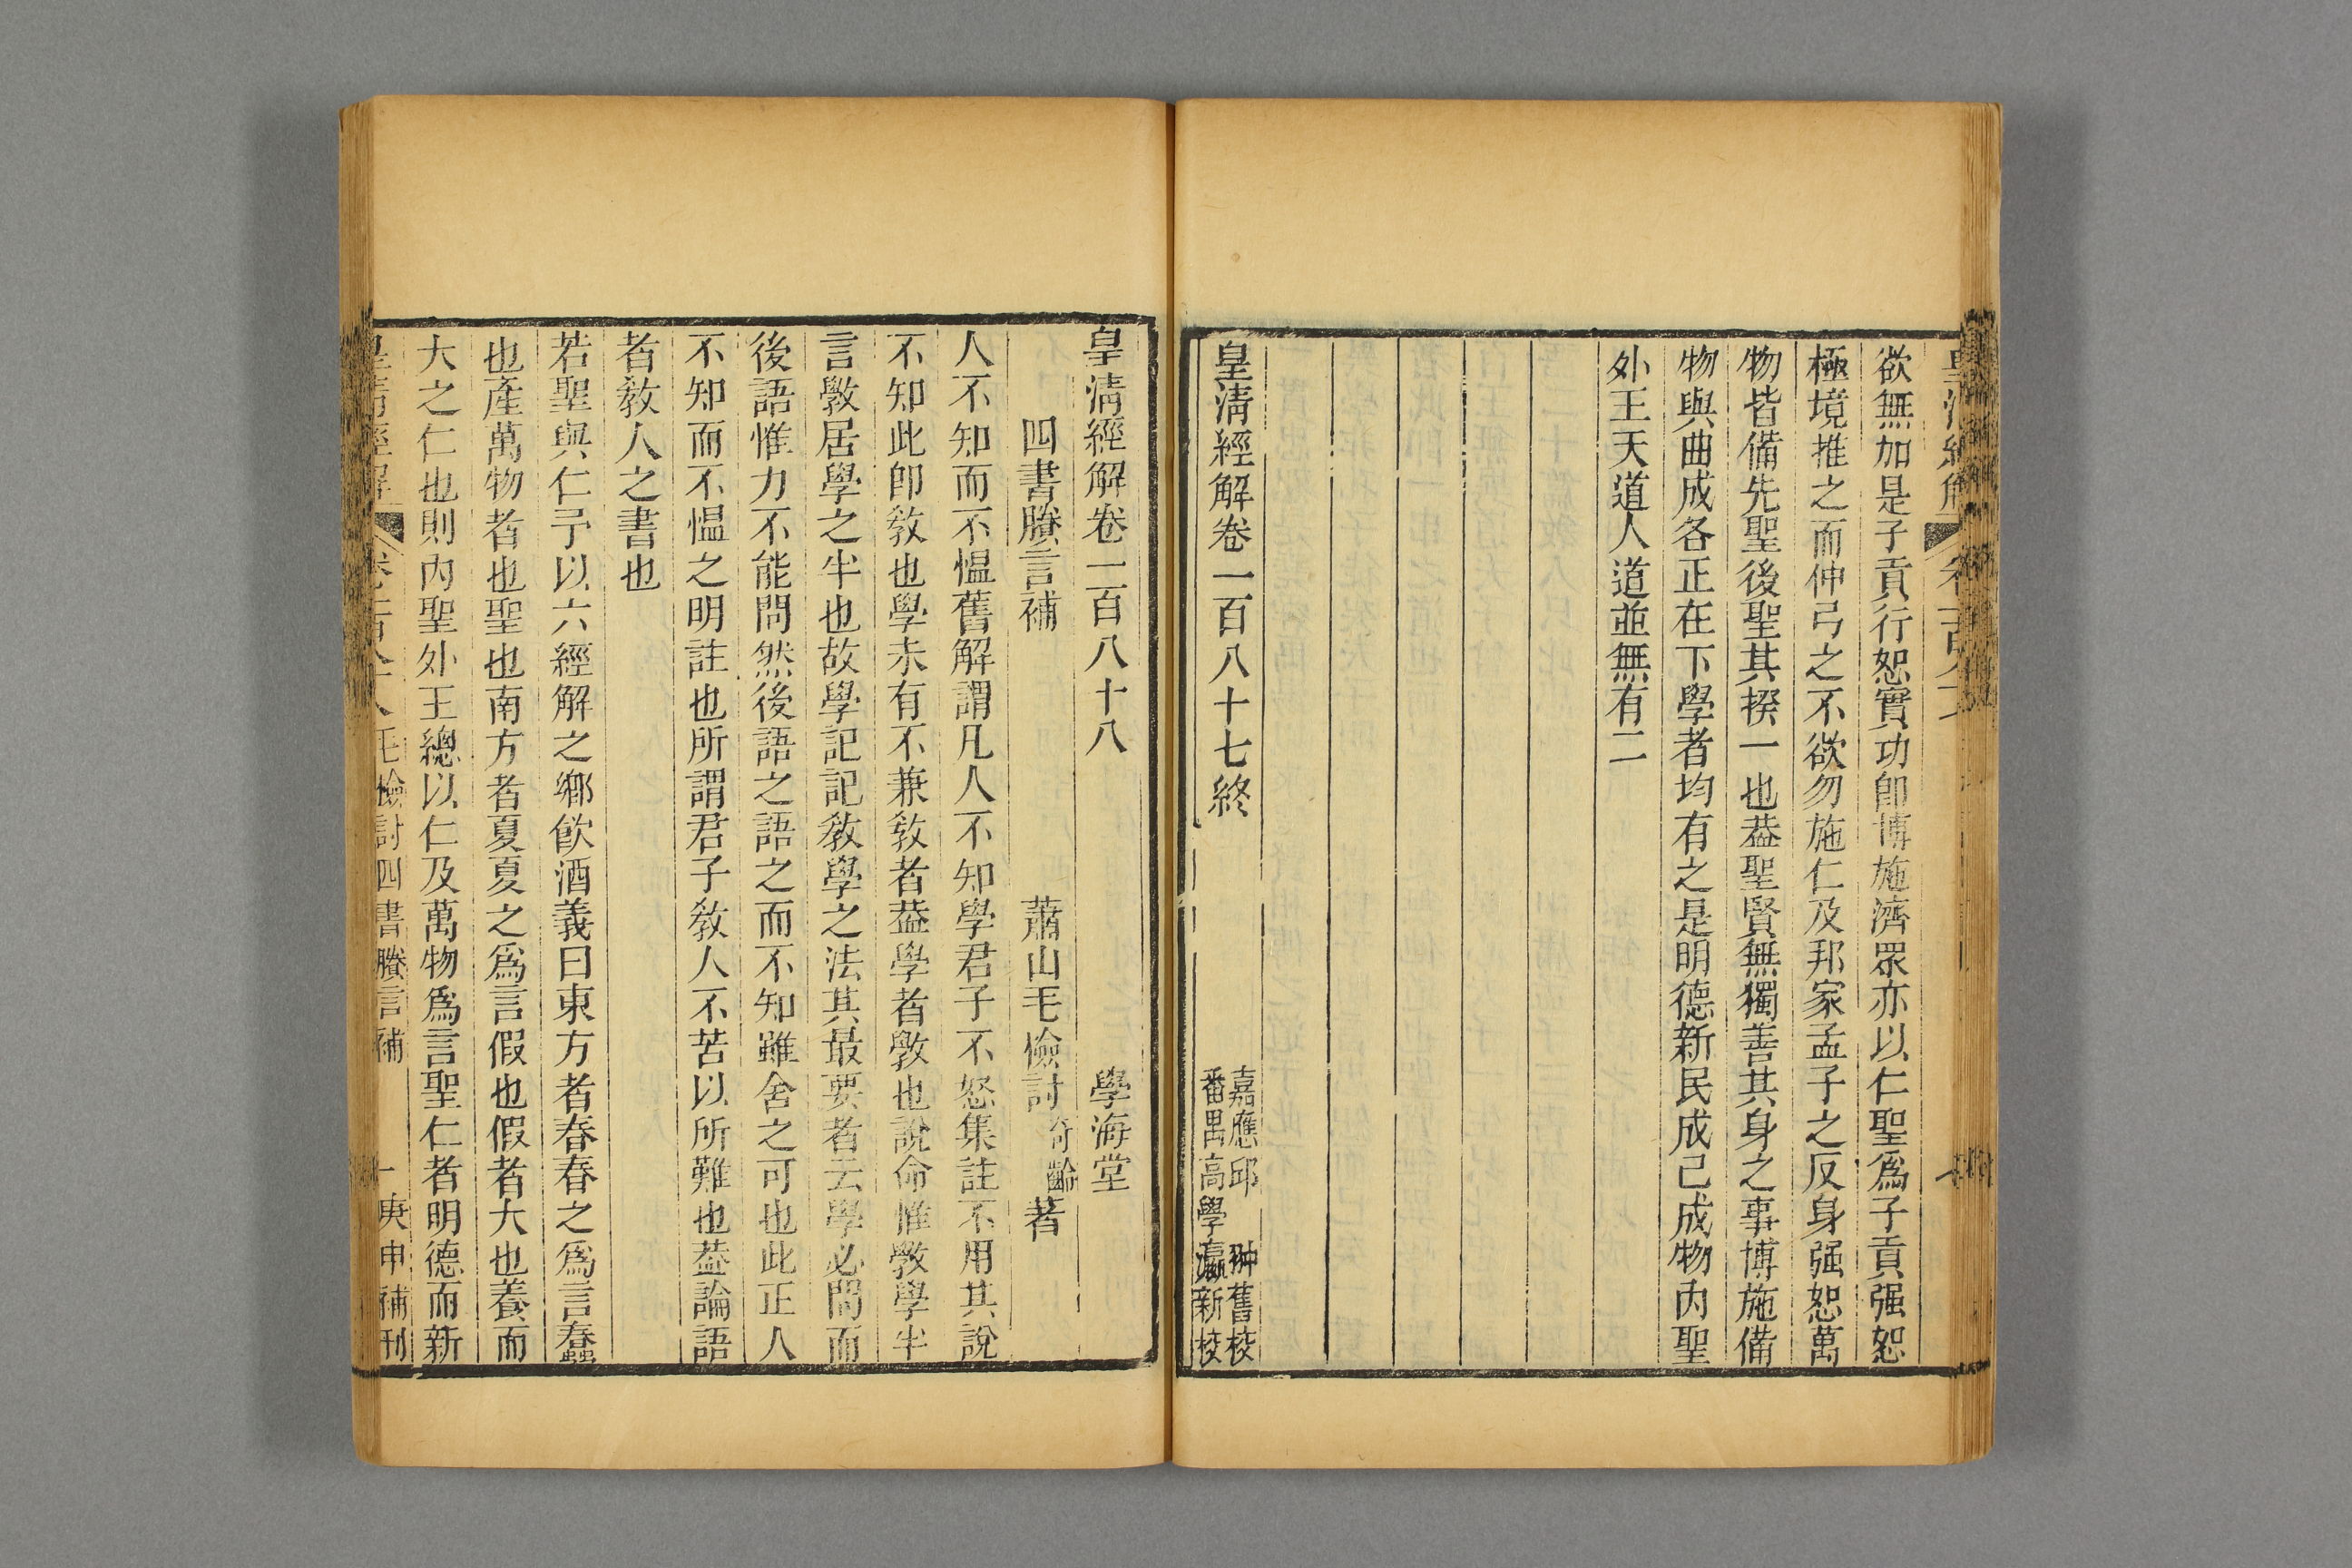 皇清經解
欲無加是子貢行恕實功卽博施濟眾亦以仁聖爲子貢强恕
極境推之而仲弓之不欲勿施仁及邦家孟子之反身强恕萬
物皆備先聖後聖其揆一也葢聖賢無獨善其身之事博施備
物與曲成各正在下學者均有之是明德新民成己成物內聖
外王天道人道並無有二
皇清經解卷一百八十七終
嘉應邱翀舊校
番禺高學瀛新校
皇清經解卷一百八十八
學海堂
四書賸言補
蕭山毛檢討奇齡著
人不知而不慍舊解謂凡人不知學君子不怒集註不用其說
不知此卽敎也學未有不兼敎者葢學者斆也說命惟斆學半
言斆居學之半也故學記記敎學之法其最要者云學必問而
後語惟力不能問然後語之語之而不知雖舍之可也此正人
不知而不慍之明註也所謂君子敎人不苦以所難也葢論語
者敎人之書也
若聖與仁予以六經解之鄕飮酒義曰東方者春春之爲言蠢
也產萬物者也聖也南方者夏夏之爲言假也假者大也養而
大之仁也則內聖外王總以仁及萬物爲言聖仁者明德而新
皇清經解
卷一百八十八
毛檢討四書賸言補
一
庚申補刊